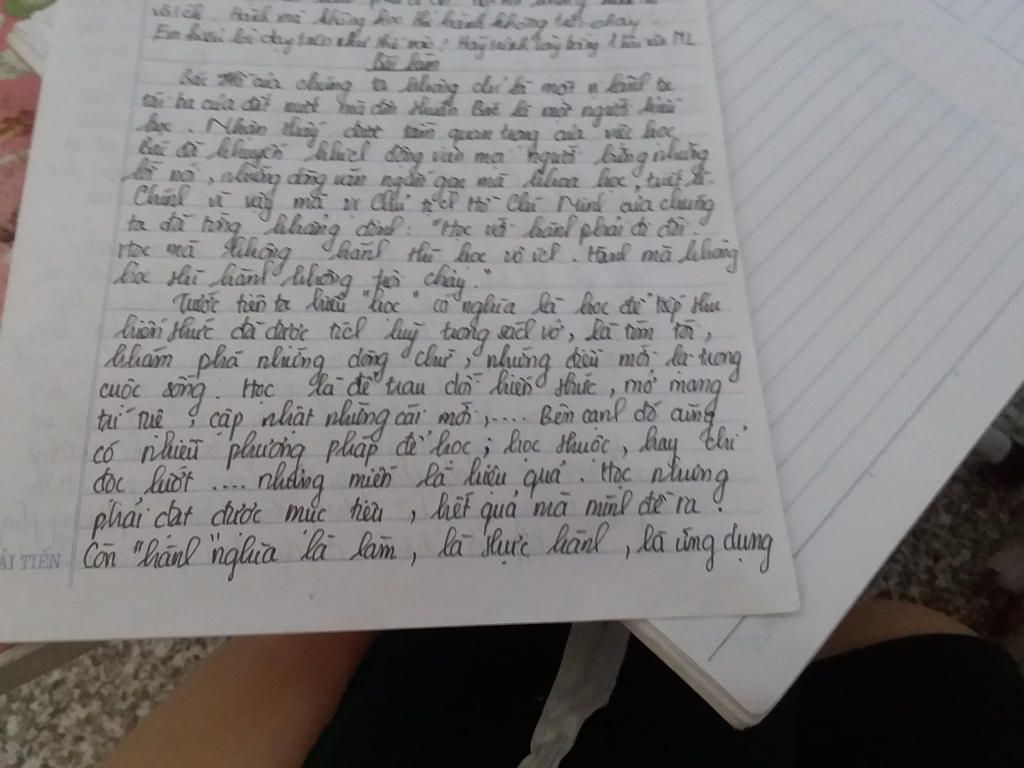 vô ích. Hành mà không học thì hành không trôi chảy
Em hiểu lời dạy trên như thế nào? Hãy trình bày bằng 1 bài văn NL
Bài làm
Bác Hồ của chúng ta không chỉ là một vị lãnh tụ
tài ba của đất nước mà còn Bác là một người hiếu
học. Nhận thấy được tầm quan trọng của việc học,
Bác đã khuyến khích động viên mọi người bằng những
lời nói, những dòng văn ngắn gọn mà khoa học, triết lí.
Chính vì vậy mà vị Chủ tịch Hồ Chí Minh của chúng
ta đã từng khẳng định: "Học với hành phải đi đôi.
Học mà không hành thì học vô ích. Hành mà không
học thì hành không trôi chảy."
Trước tiên ta hiểu "học" có nghĩa là học để tiếp thu
kiến thức đã được tích luỹ trong sách vở, là tìm tòi,
khám phá những dòng chữ, những điều mới lạ trong
cuộc sống. Học là để trau dồi kiến thức, mở mang
trí tuệ, cập nhật những cái mới,.... Bên cạnh đó cũng
có nhiều phương pháp để học; học thuộc, hay chỉ
đọc lướt .... nhưng miễn là hiệu quả. Học nhưng
phải đạt được mục tiêu, kết quả mà mình đề ra.
Còn "hành" nghĩa là làm, là thực hành, là ứng dụng
ẢI TIẾN